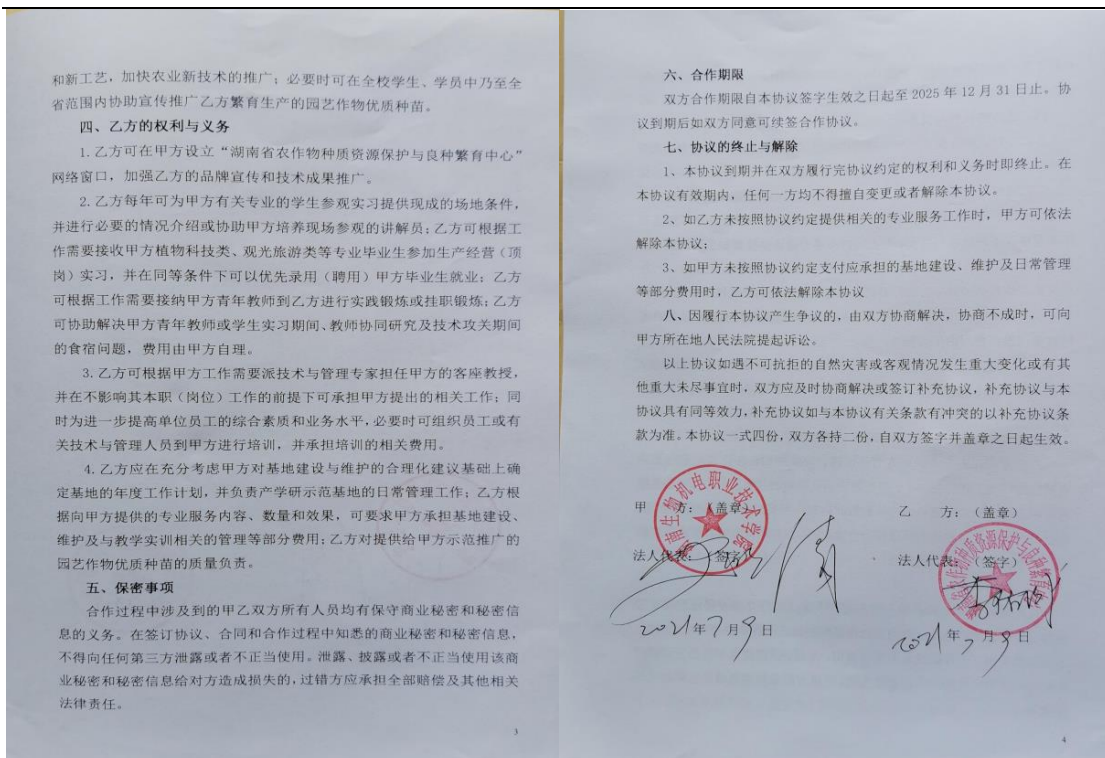 和新工艺，加快农业新技术的推广；必要时可在全校学生、学员中乃至全
省范围内协助宣传推广乙方繁育生产的园艺作物优质种苗。
四、乙方的权利与义务
1.乙方可在甲方设立“湖南省农作物种质资源保护与良种繁育中心”
网络窗口，加强乙方的品牌宣传和技术成果推广。
2.乙方每年可为甲方有关专业的学生参观实习提供现成的场地条件，
并进行必要的情况介绍或协助甲方培养现场参观的讲解员；乙方可根据工
作需要接收甲方植物科技类、观光旅游类等专业毕业生参加生产经营（顶
岗）实习，并在同等条件下可以优先录用（聘用）甲方毕业生就业；乙方
可根据工作需要接纳甲方青年教师到乙方进行实践锻炼或挂职锻炼；乙方
可协助解决甲方青年教师或学生实习期间、教师协同研究及技术攻关期间
的食宿问题，费用由甲方自理。
3.乙方可根据甲方工作需要派技术与管理专家担任甲方的客座教授，
并在不影响其本职（岗位）工作的前提下可承担甲方提出的相关工作；同
时为进一步提高单位员工的综合素质和业务水平，必要时可组织员工或有
关技术与管理人员到甲方进行培训，并承担培训的相关费用。
4.乙方应在充分考虑甲方对基地建设与维护的合理化建议基础上确
定基地的年度工作计划，并负责产学研示范基地的日常管理工作；乙方根
据向甲方提供的专业服务内容、数量和效果，可要求甲方承担基地建设、
维护及与教学实训相关的管理等部分费用；乙方对提供给甲方示范推广的
园艺作物优质种苗的质量负责。
五、保密事项
合作过程中涉及到的甲乙双方所有人员均有保守商业秘密和秘密信
息的义务。在签订协议、合同和合作过程中知悉的商业秘密和秘密信息，
不得向任何第三方泄露或者不正当使用。泄露、披露或者不正当使用该商
业秘密和秘密信息给对方造成损失的，过错方应承担全部赔偿及其他相关
法律责任。
3
六、合作期限
双方合作期限自本协议签字生效之日起至 2025 年 12 月 31 日止。协
议到期后如双方同意可续签合作协议。
七、协议的终止与解除
1、本协议到期并在双方履行完协议约定的权利和义务时即终止。在
本协议有效期内，任何一方均不得擅自变更或者解除本协议。
2、如乙方未按照协议约定提供相关的专业服务工作时，甲方可依法
解除本协议；
3、如甲方未按照协议约定支付应承担的基地建设、维护及日常管理
等部分费用时，乙方可依法解除本协议
八、因履行本协议产生争议的，由双方协商解决，协商不成时，可向
甲方所在地人民法院提起诉讼。
以上协议如遇不可抗拒的自然灾害或客观情况发生重大变化或有其
他重大未尽事宜时，双方应及时协商解决或签订补充协议，补充协议与本
协议具有同等效力，补充协议如与本协议有关条款有冲突的以补充协议条
款为准。本协议一式四份，双方各持二份，自双方签字并盖章之日起生效。
甲 方：（盖章）
湖南生物机电职业技术学院
法人代表：（签字）
2021年7月9日
乙 方：（盖章）
湖南省农作物种质资源保护与良种繁育中心
法人代表：（签字）
2021年7月9日
4